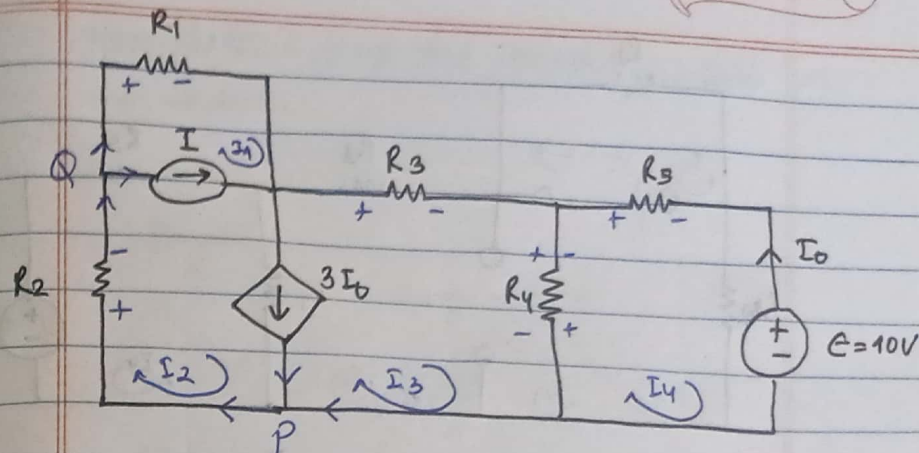 R1
+ -
Q
I
I1
R3
+ -
R5
+ -
I0
R2
-
+
3I0
R4
+ -
- +
+
-
E=10V
I2
I3
I4
P